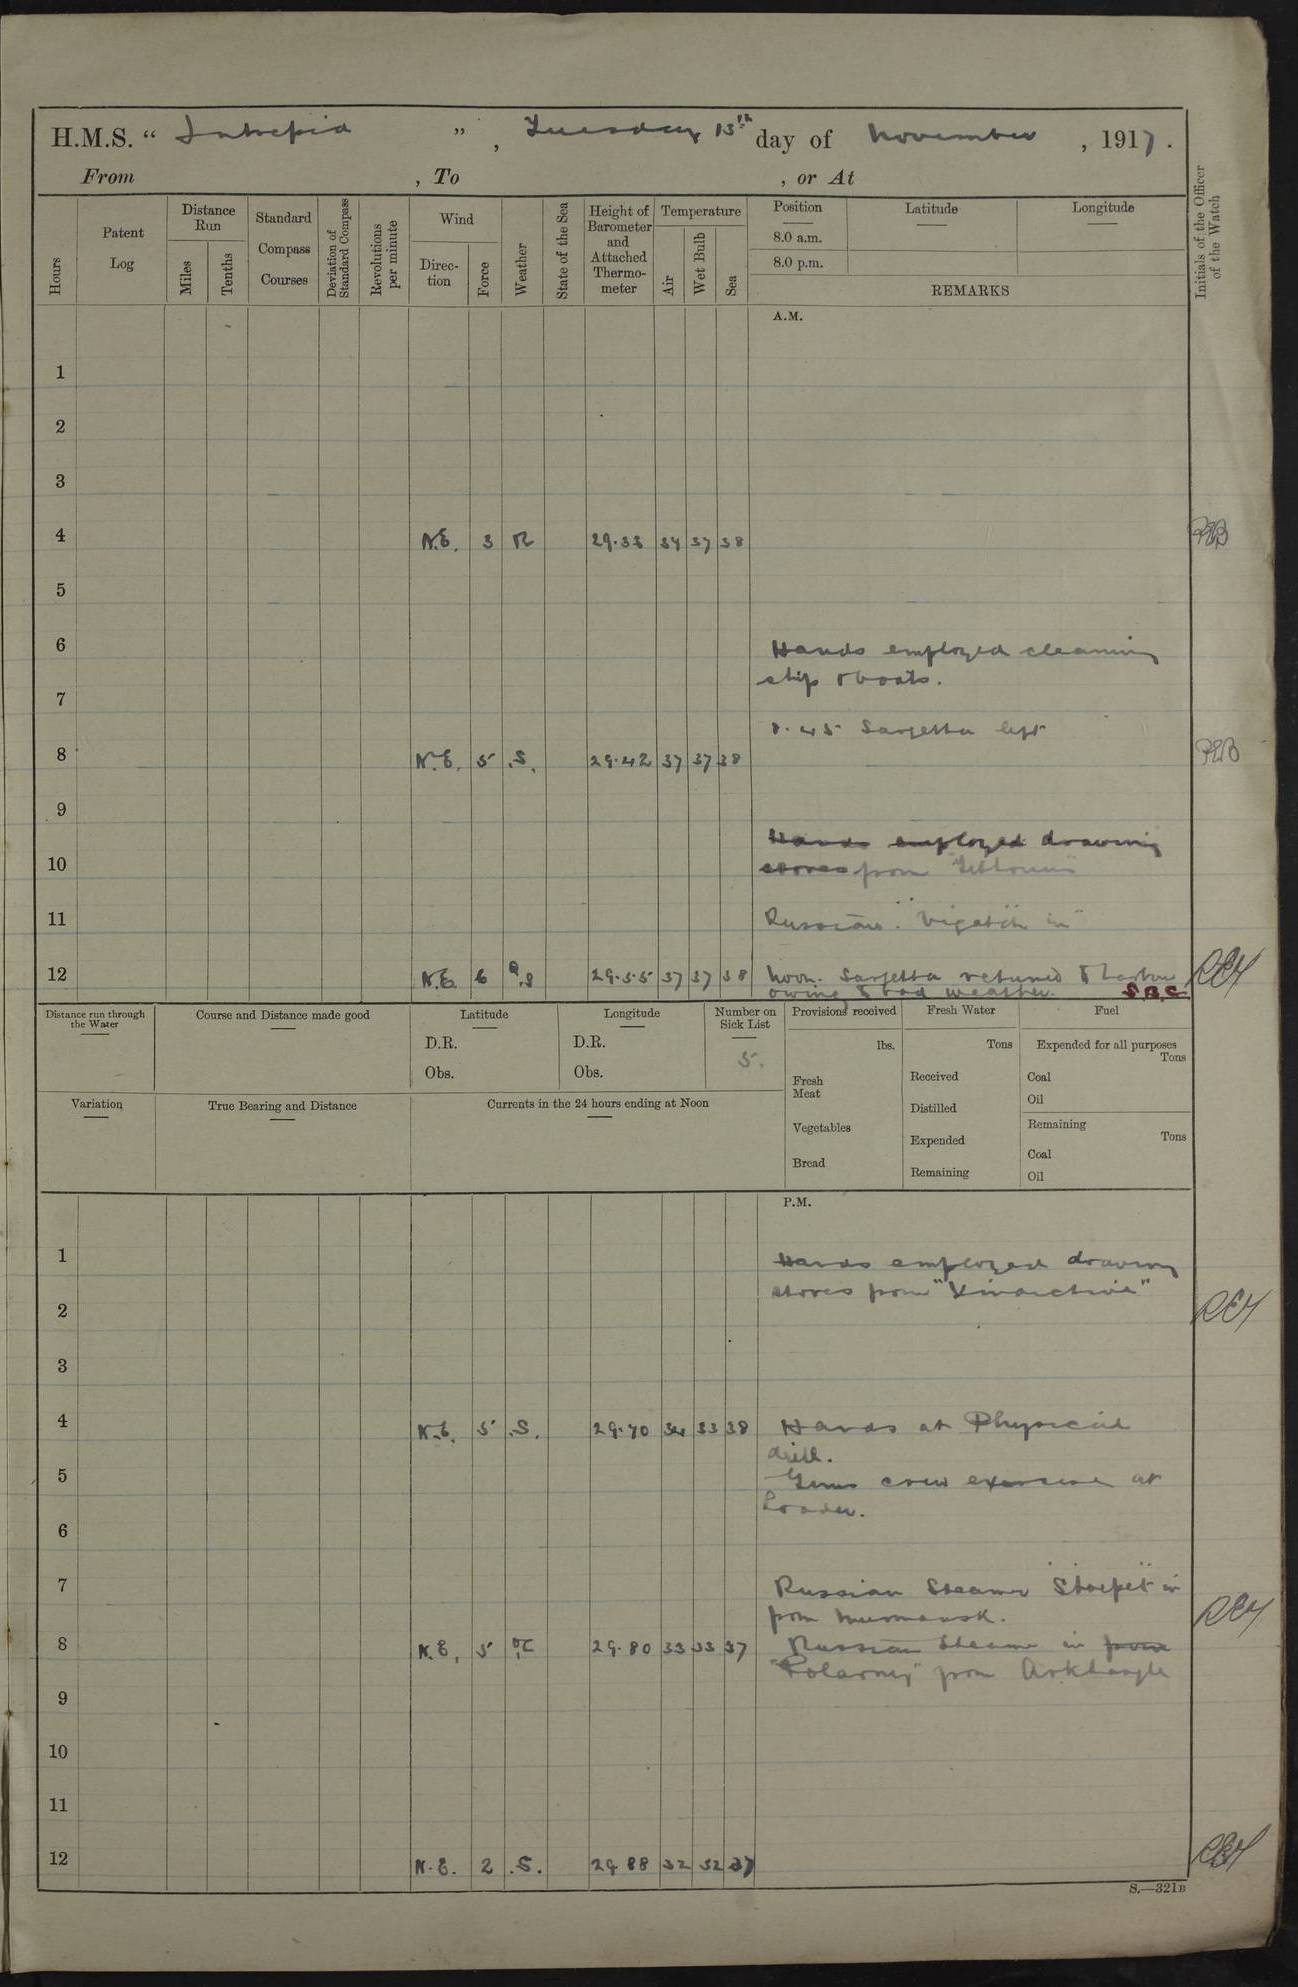 H.M.S. “ Intrepid ” , Tuesday 13th day of November , 1917 .
From , To , or At
Hours
Patent Log
Distance Run
Miles
Tenths
Standard Compass Courses
Deviation of Standard Compass
Revolutions per minute
Wind
Direc-tion
Force
Weather
State of the Sea
Height of Barometer and Attached Thermo-meter
Temperature
Air
Wet Bulb
Sea
Position
8.0 a.m.
8.0 p.m.
Latitude
Longitude
REMARKS
Initials of the Officer of the Watch
A.M.
1
2
3
4 N.E. 3 R 29.33 34 37 38
5
6 Hands employed cleaning
ship & boats.
7
8.45 Sarjetta left
8 N.E. 5 .S. 29.42 37 37 38
9
Hands employed drawing
10 stores from
11 Russian in
12 N.E. 6 Q.S 29.55 37 37 38 Noon. Sarjetta returned to harbour
owing to bad weather. S.B.C
Distance run through the Water
Course and Distance made good
Latitude
D.R.
Obs.
Longitude
D.R.
Obs.
Number on Sick List
5.
Provisions received
lbs.
Fresh Meat
Vegetables
Bread
Fresh Water
Tons
Received
Distilled
Expended
Remaining
Fuel
Expended for all purposes
Tons
Coal
Oil
Remaining
Tons
Coal
Oil
Variation
True Bearing and Distance
Currents in the 24 hours ending at Noon
P.M.
1 Hands employed drawing
stores from
2
3
4 N.E. 5 .S. 29.70 34 33 38 Hands at Physical
drill.
5 Guns crew exercise at
Loader.
6
7 Russian Steamer in
from Murmansk.
8 N.E. 5 OC 29.80 33 33 37 Russian Steamer in from
"Polarny" from Arkhangle
9
10
11
12 N.E. 2 .S. 29 88 32 32 37
S.—321B